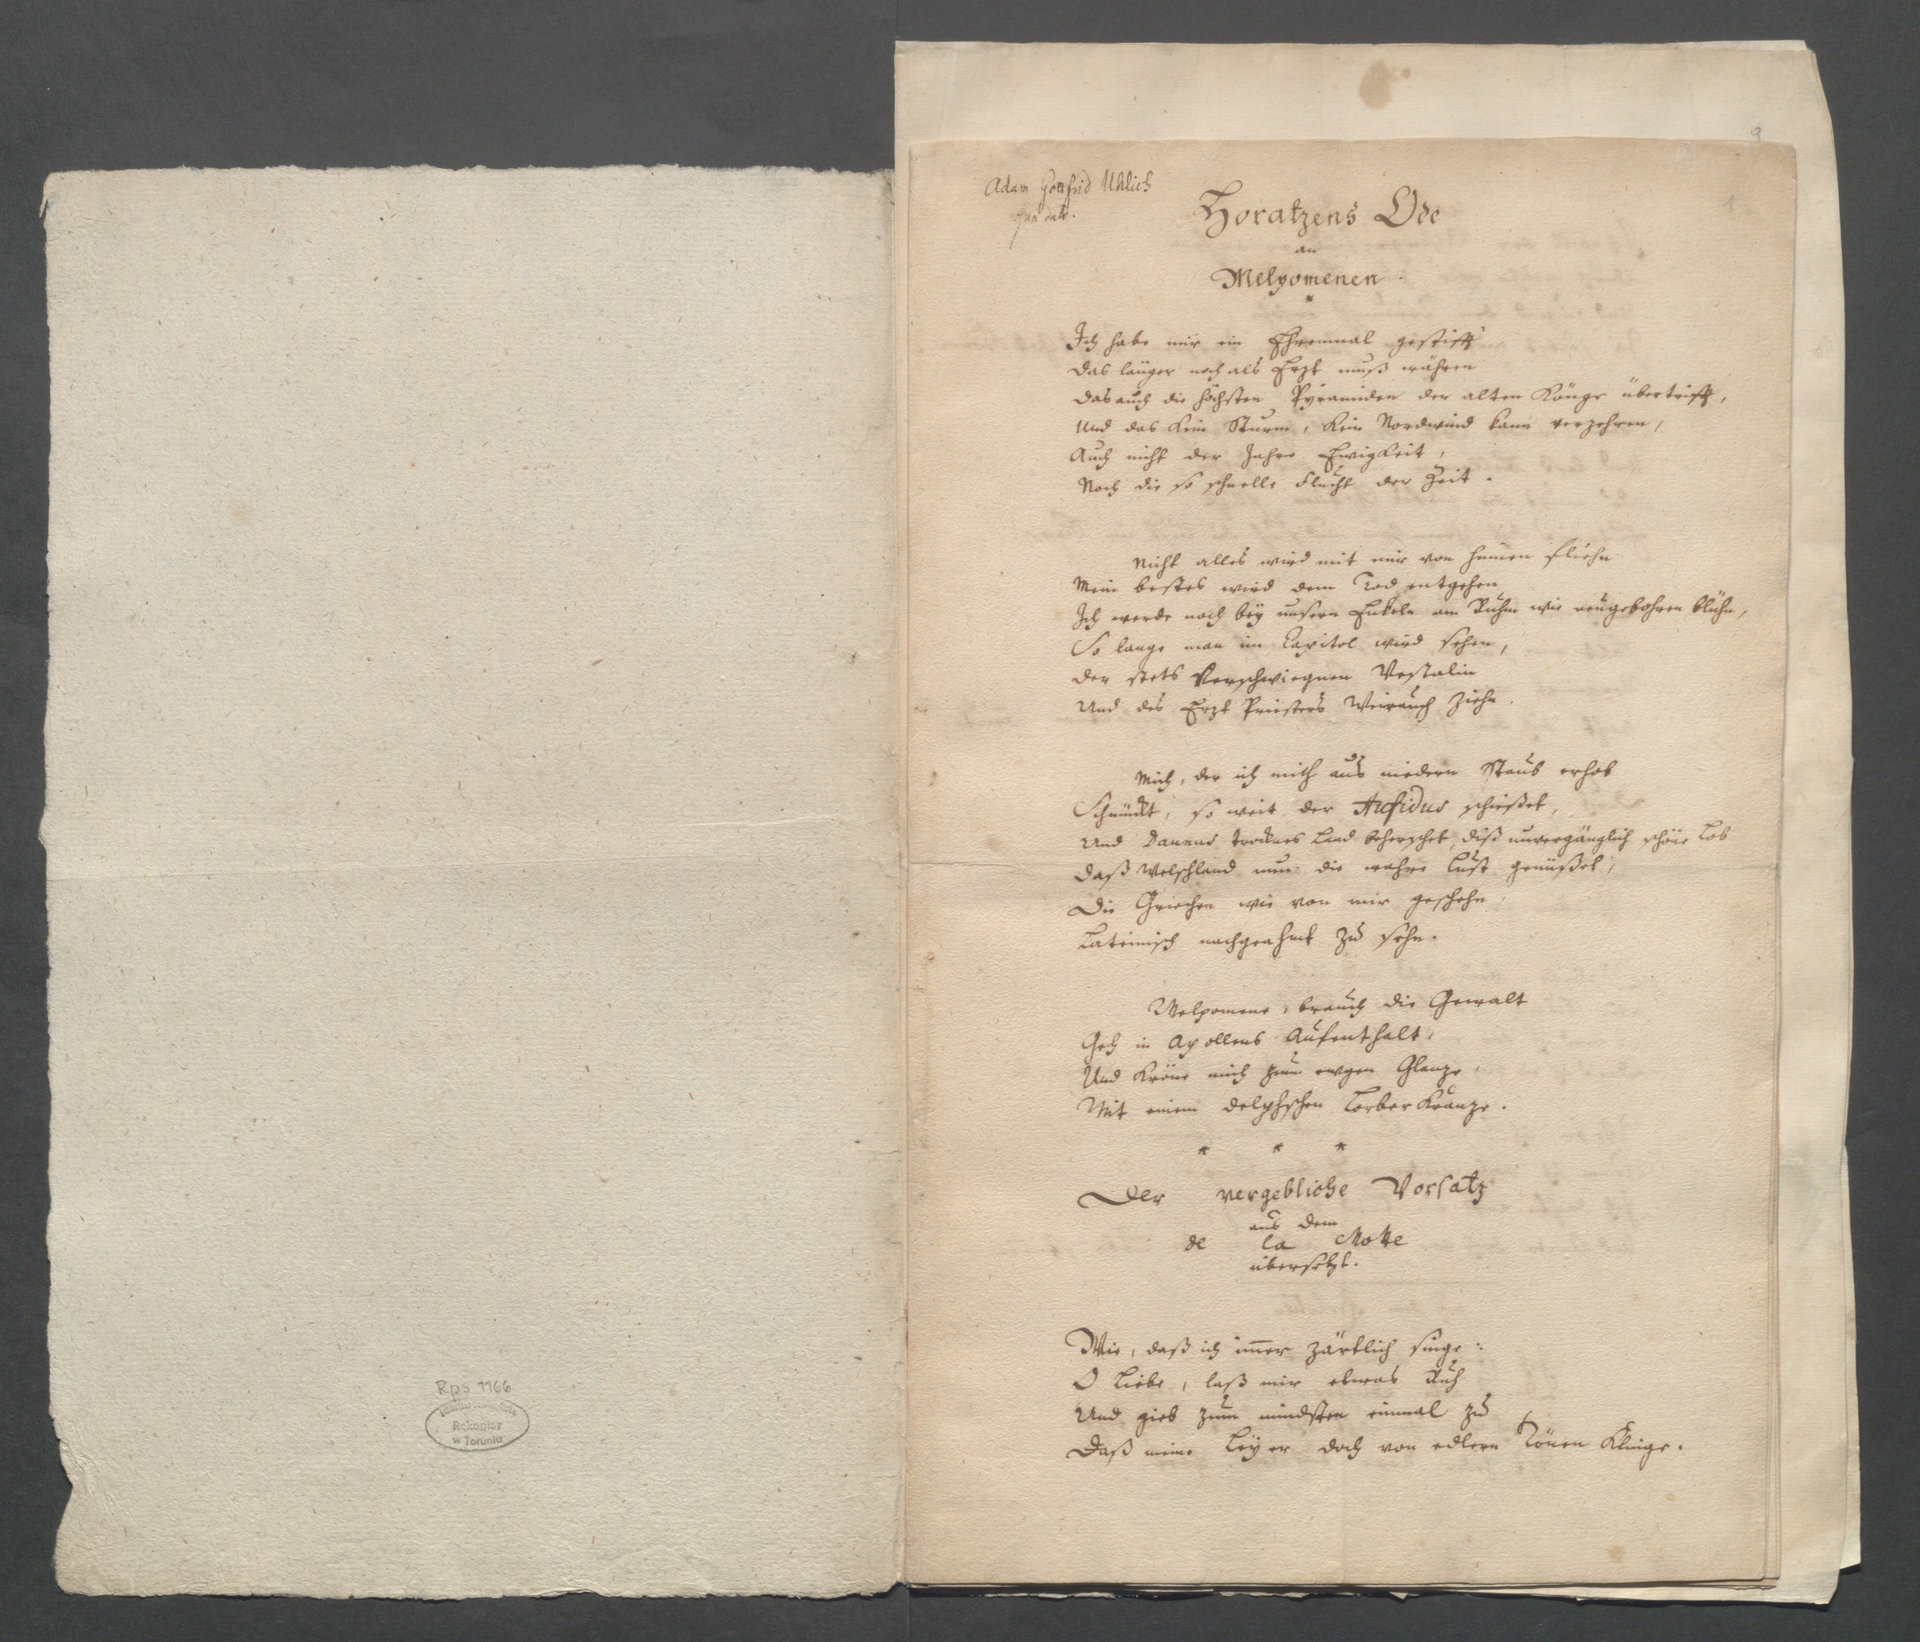 Rps 1166
Książnica Miejska
im. Kopernika
w Toruniu
9
1
Adam Gottfrid Uhlich
Horatzens Ode
an
Melpomenen.
Ich habe mir ein Ehrenmal gestifft,
Das länger noch als Erzt muß währen
Das auch die höchsten Pyramiden der alten Könge übertrifft,
Und das kein Sturm, kein Nordwind kann verzehren,
Auch nicht der Jahre Ewigkeit,
Noch die so schnelle Flucht der Zeit.
Nicht alles wird mit mir von hinnen fliehn
Mein bestes wird dem Tod entgehen
Ich werde noch bey unsern Enkeln am Ruhm wie neugebohren blühn,
So lange man im Capitol wird sehen,
Der stets verschwiegnen Vestalin
Und des Erzt Priesters Weirauch ziehn.
Mich, der ich mich aus niedern Staub erhob
Schmückt, so weit der Aufidus schießet,
Und Daunus trocknes Land beherschet, diß unvergänglich schöne Lob
Daß Welschland nun die wahre Lust genüßet,
Die Griechen wie von mir geschehn
Lateinisch nachgeahmt zu sehn.
Melpomene, brauch die Gewalt
Geh in Apollens Aufenthalt,
Und kröne mich zum ewgen Glanze,
Mit einem delphschen Lorber Kranze.
* * *
Der vergebliche Vorsatz
aus dem
de la Motte
übersetzt.
Wie, daß ich immer zärtlich singe:
O Liebe, laß mir etwas Ruh
Und gieb zum mindsten einmal zu
Daß meine Leyer doch von edlern Tönen klinge.